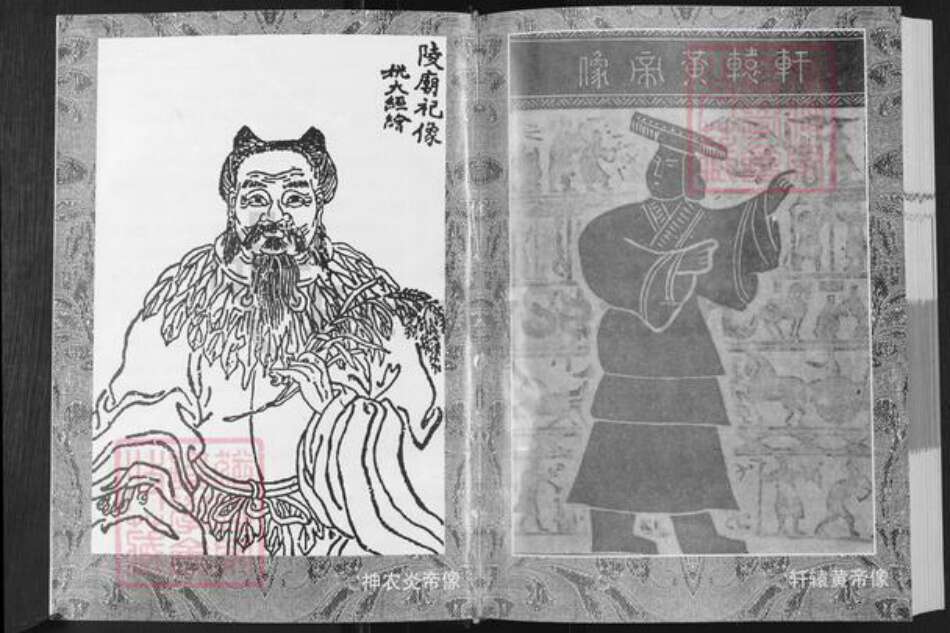 陵廟祀像
姚大經繪
神农炎帝像
軒轅黃帝像
轩辕黄帝像